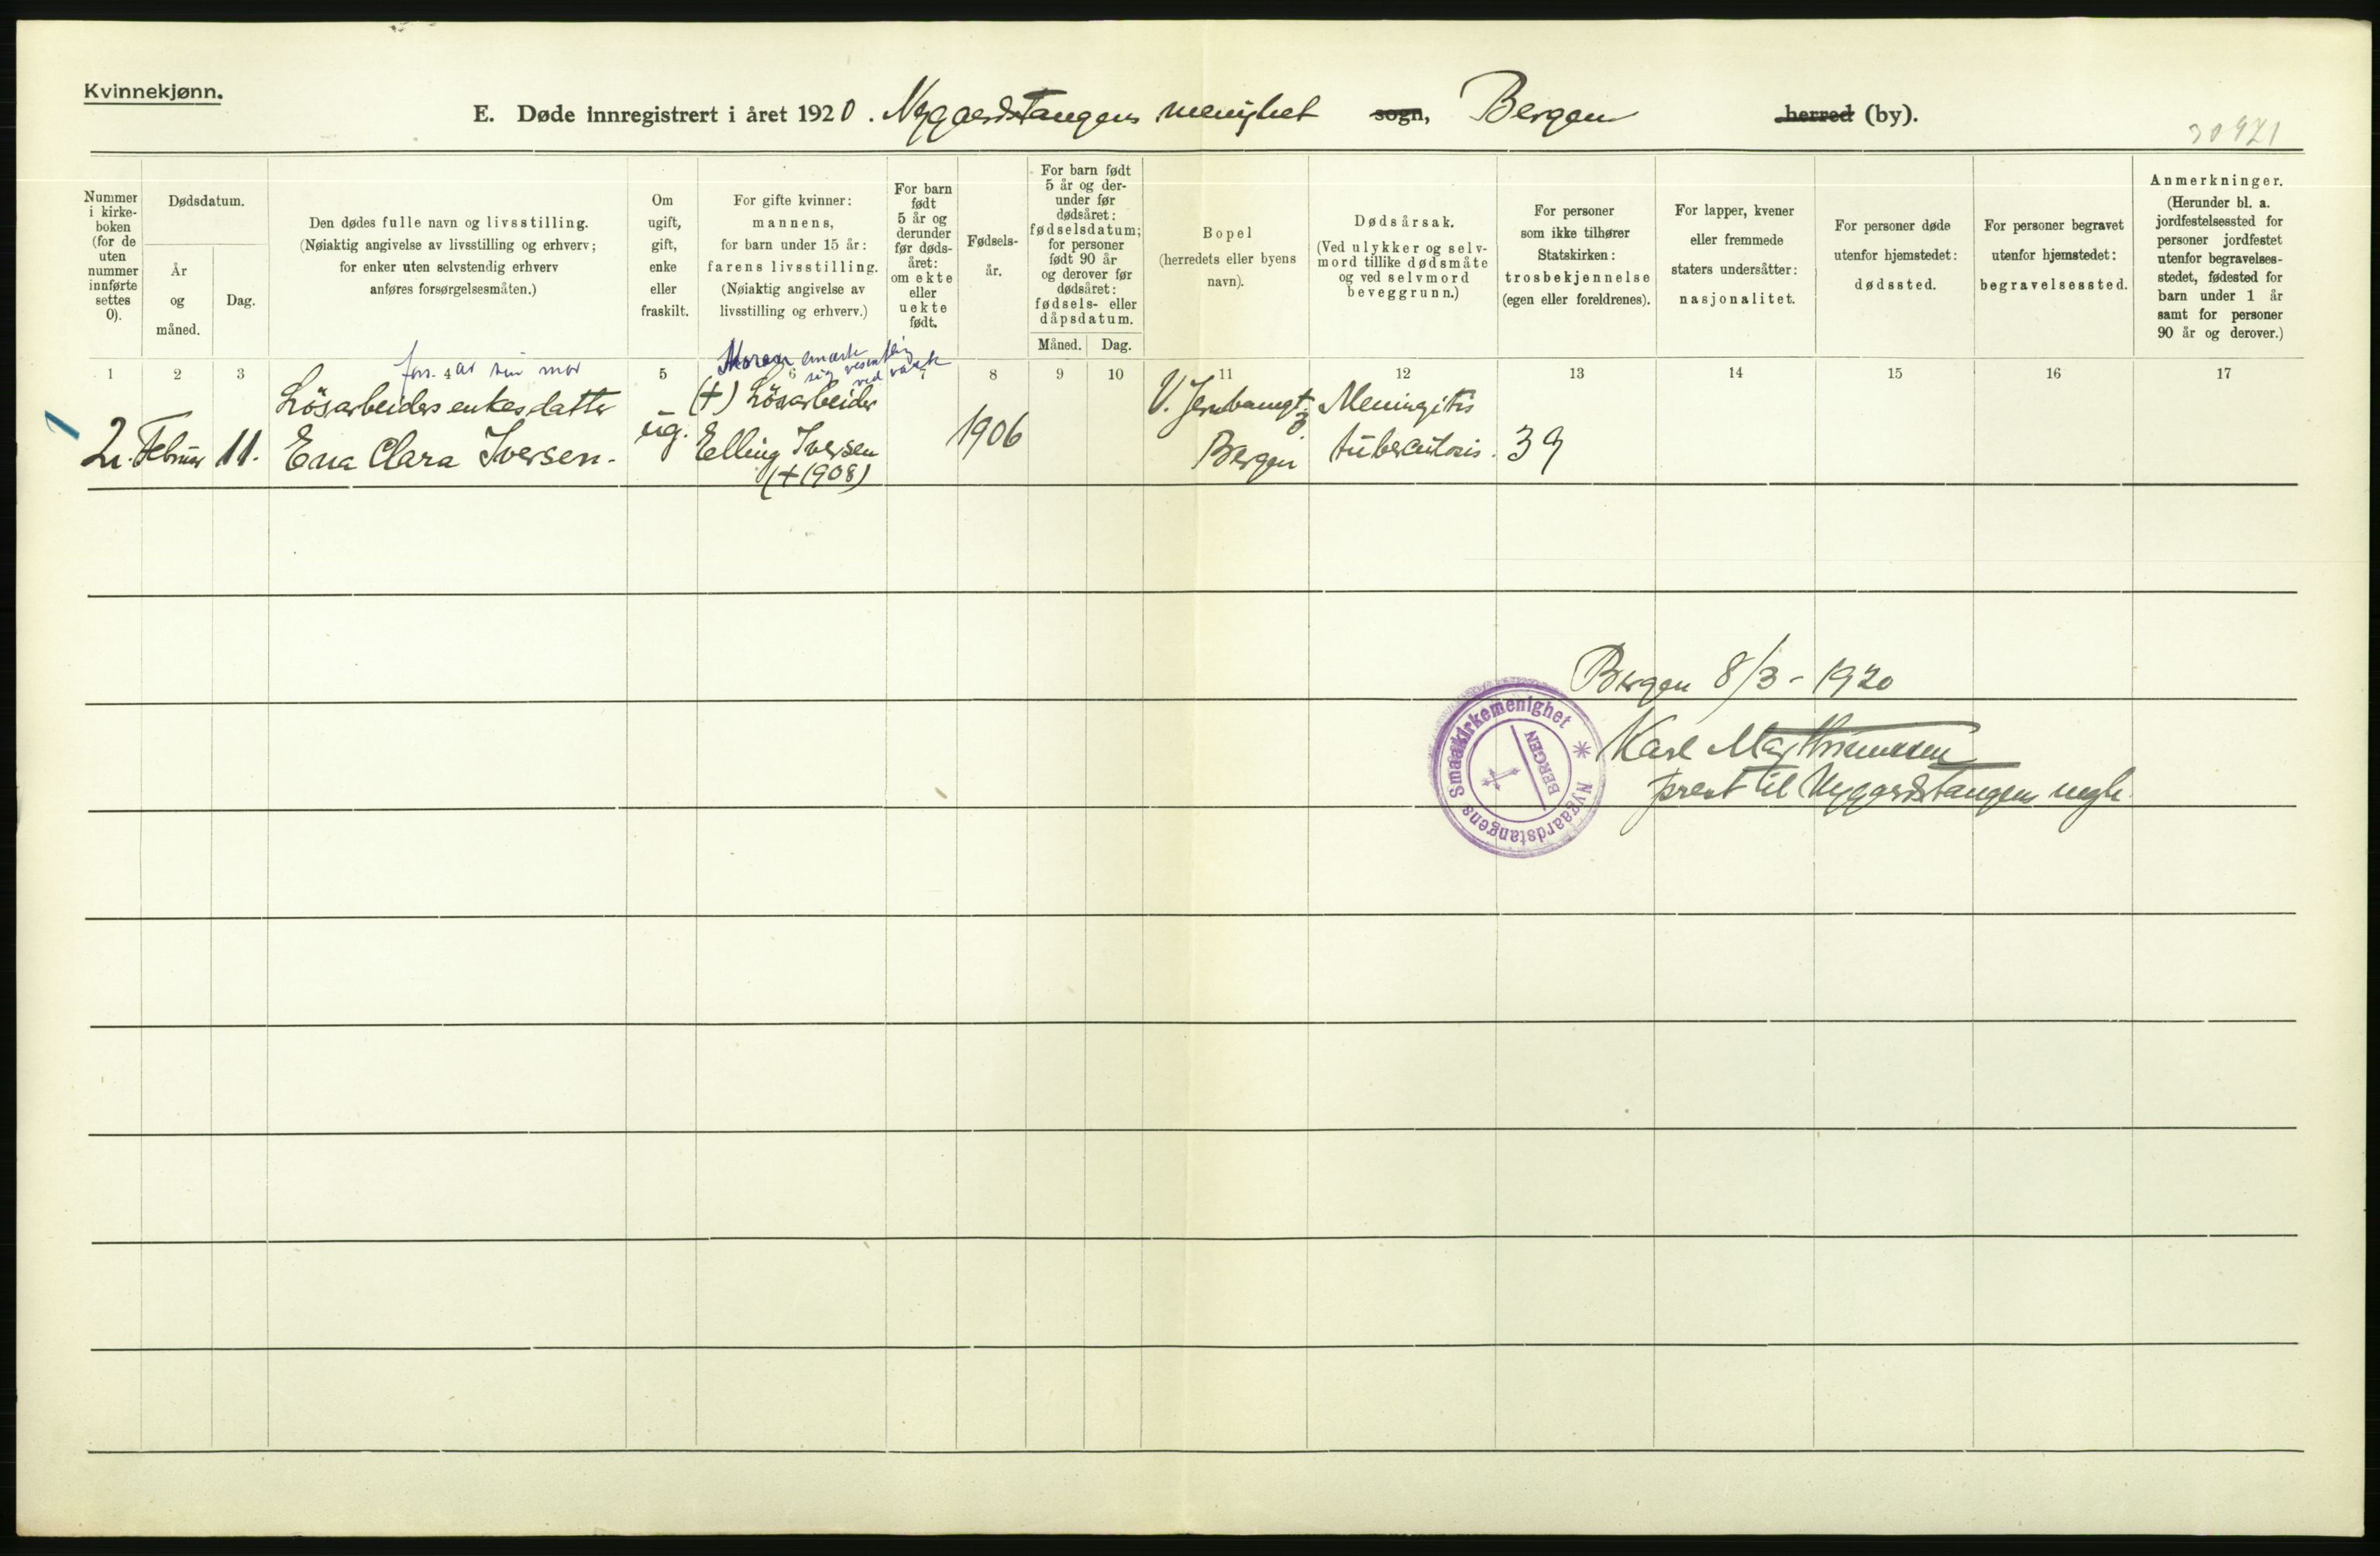 Kvinnekjønn.
E. Døde innregistrert i året 1920. Nygaardstangens menighet sogn, Bergen herred (by).
30921
Nummer i kirke-boken (for de uten nummer innførte settes 0).
Dødsdatum.
År og måned.
Dag.
Den dødes fulle navn og livsstilling.
(Nøiaktig angivelse av livsstilling og erhverv;
for enker uten selvstendig erhverv
anføres forsørgelsesmåten.)
Om
ugift,
gift,
enke
eller
fraskilt.
For gifte kvinner:
mannens,
for barn under 15 år:
farens livsstilling.
(Nøiaktig angivelse av
livsstilling og erhverv.)
For barn
født
5 år og
derunder
før døds-
året:
om ekte
eller
uekte
født.
Fødsels-
år.
For barn født
5 år og der-
under før
dødsåret:
fødselsdatum;
for personer
født 90 år
og derover før
dødsåret:
fødsels- eller
dåpsdatum.
Måned.
Dag.
Bopel
(herredets eller byens
navn).
Dødsårsak.
(Ved ulykker og selv-
mord tillike dødsmåte
og ved selvmord
beveggrunn.)
For personer
som ikke tilhører
Statskirken:
trosbekjennelse
(egen eller foreldrenes).
For lapper, kvener
eller fremmede
staters undersåtter:
nasjonalitet.
For personer døde
utenfor hjemstedet:
dødssted.
For personer begravet
utenfor hjemstedet:
begravelsessted.
Anmerkninger.
(Herunder bl. a.
jordfestelsessted for
personer jordfestet
utenfor begravelses-
stedet, fødested for
barn under 1 år
samt for personer
90 år og derover.)
1 2 3 4 5 6 7 8 9 10 11 12 13 14 15 16 17
fors. av sin mor
Moren ernærte
sig vesentlig
ved vask
1
2. Februar 11.
Løsarbeiders enkes datter
Ena Clara Iversen.
ug.
(+) Løsarbeider
Elling Iversen
(+ 1908)
1906
V. Jernbanegt.
Bergen
Meningitis
tuberculosis.
39
Bergen 8/3 - 1920
Karl Marthinussen
prest til Nygaardstangens mgh.
Nygaardstangens Smaakirkemenighet
BERGEN